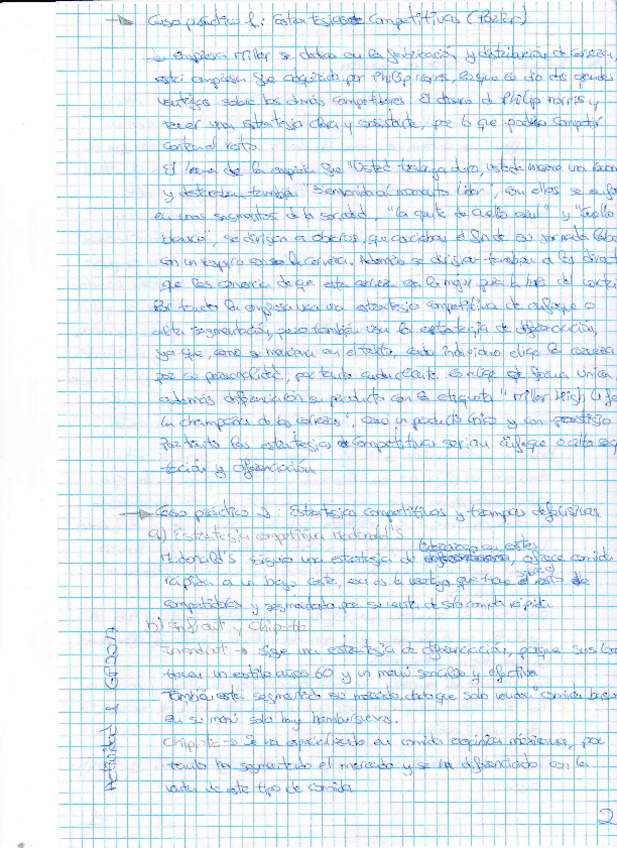 Caso práctico 1: Estrategias Competitivas (Porter)
La empresa Miller se dedica en la fabricación y distribución de cerveza,
esta empresa fue adquirida por Philip Morris, lo que le dio dos grandes
ventajas sobre los demás competidores: El dinero de Philip Morris y
tener una estrategia clara y consistente, por lo que podía competir
contra el resto.
El lema de la empresa fue "Usted trabaja duro, usted merece una
y también "Bienvenido al momento Miller", con ellos se
en unos segmentos de la sociedad, "la gente de cuello azul" y "cuello
blanco", se dirigían a obreros, que el fin de su jornada
con un respiro con la cerveza. Además se dirigían también a los
que les de que esta cerveza era la mejor para la hora del
Por tanto la empresa usa una estrategia competitiva de enfoque o
alta segmentación, pero también usa la estrategia de diferenciación,
ya que, como se menciona en el texto, cada individuo elige la cerveza
por su personalidad, por tanto cada cliente la elige de forma única
además diferenciaron su producto con la etiqueta "Miller High Life
la champagne de las cervezas", como un producto único y con prestigio
Por tanto las estrategias competitivas serían enfoque o alta
tación y diferenciación.
Caso práctico 2: Estrategias competitivas y trampas
a) Estrategia competitiva McDonald's
liderazgo en costes
McDonald's siguió una estrategia de, ofrece comida
rápida a un bajo coste, esa es la ventaja que tiene
competidores y segmentada por su venta de solo comida rápida.
b) y Chipotle
→ sigue una estrategia de diferenciación, porque sus
tienen un estilo años 60 y un menú sencillo y efectivo.
También está segmentado su mercado, dado que solo venden "comida
en su menú solo hay hamburguesa.
Chipotle → Se ha especializado en comida mexicana, por
tanto ha segmentado el mercado y se ha diferenciado con la
venta de este tipo de comida.
Actividad 1 GP2017
2